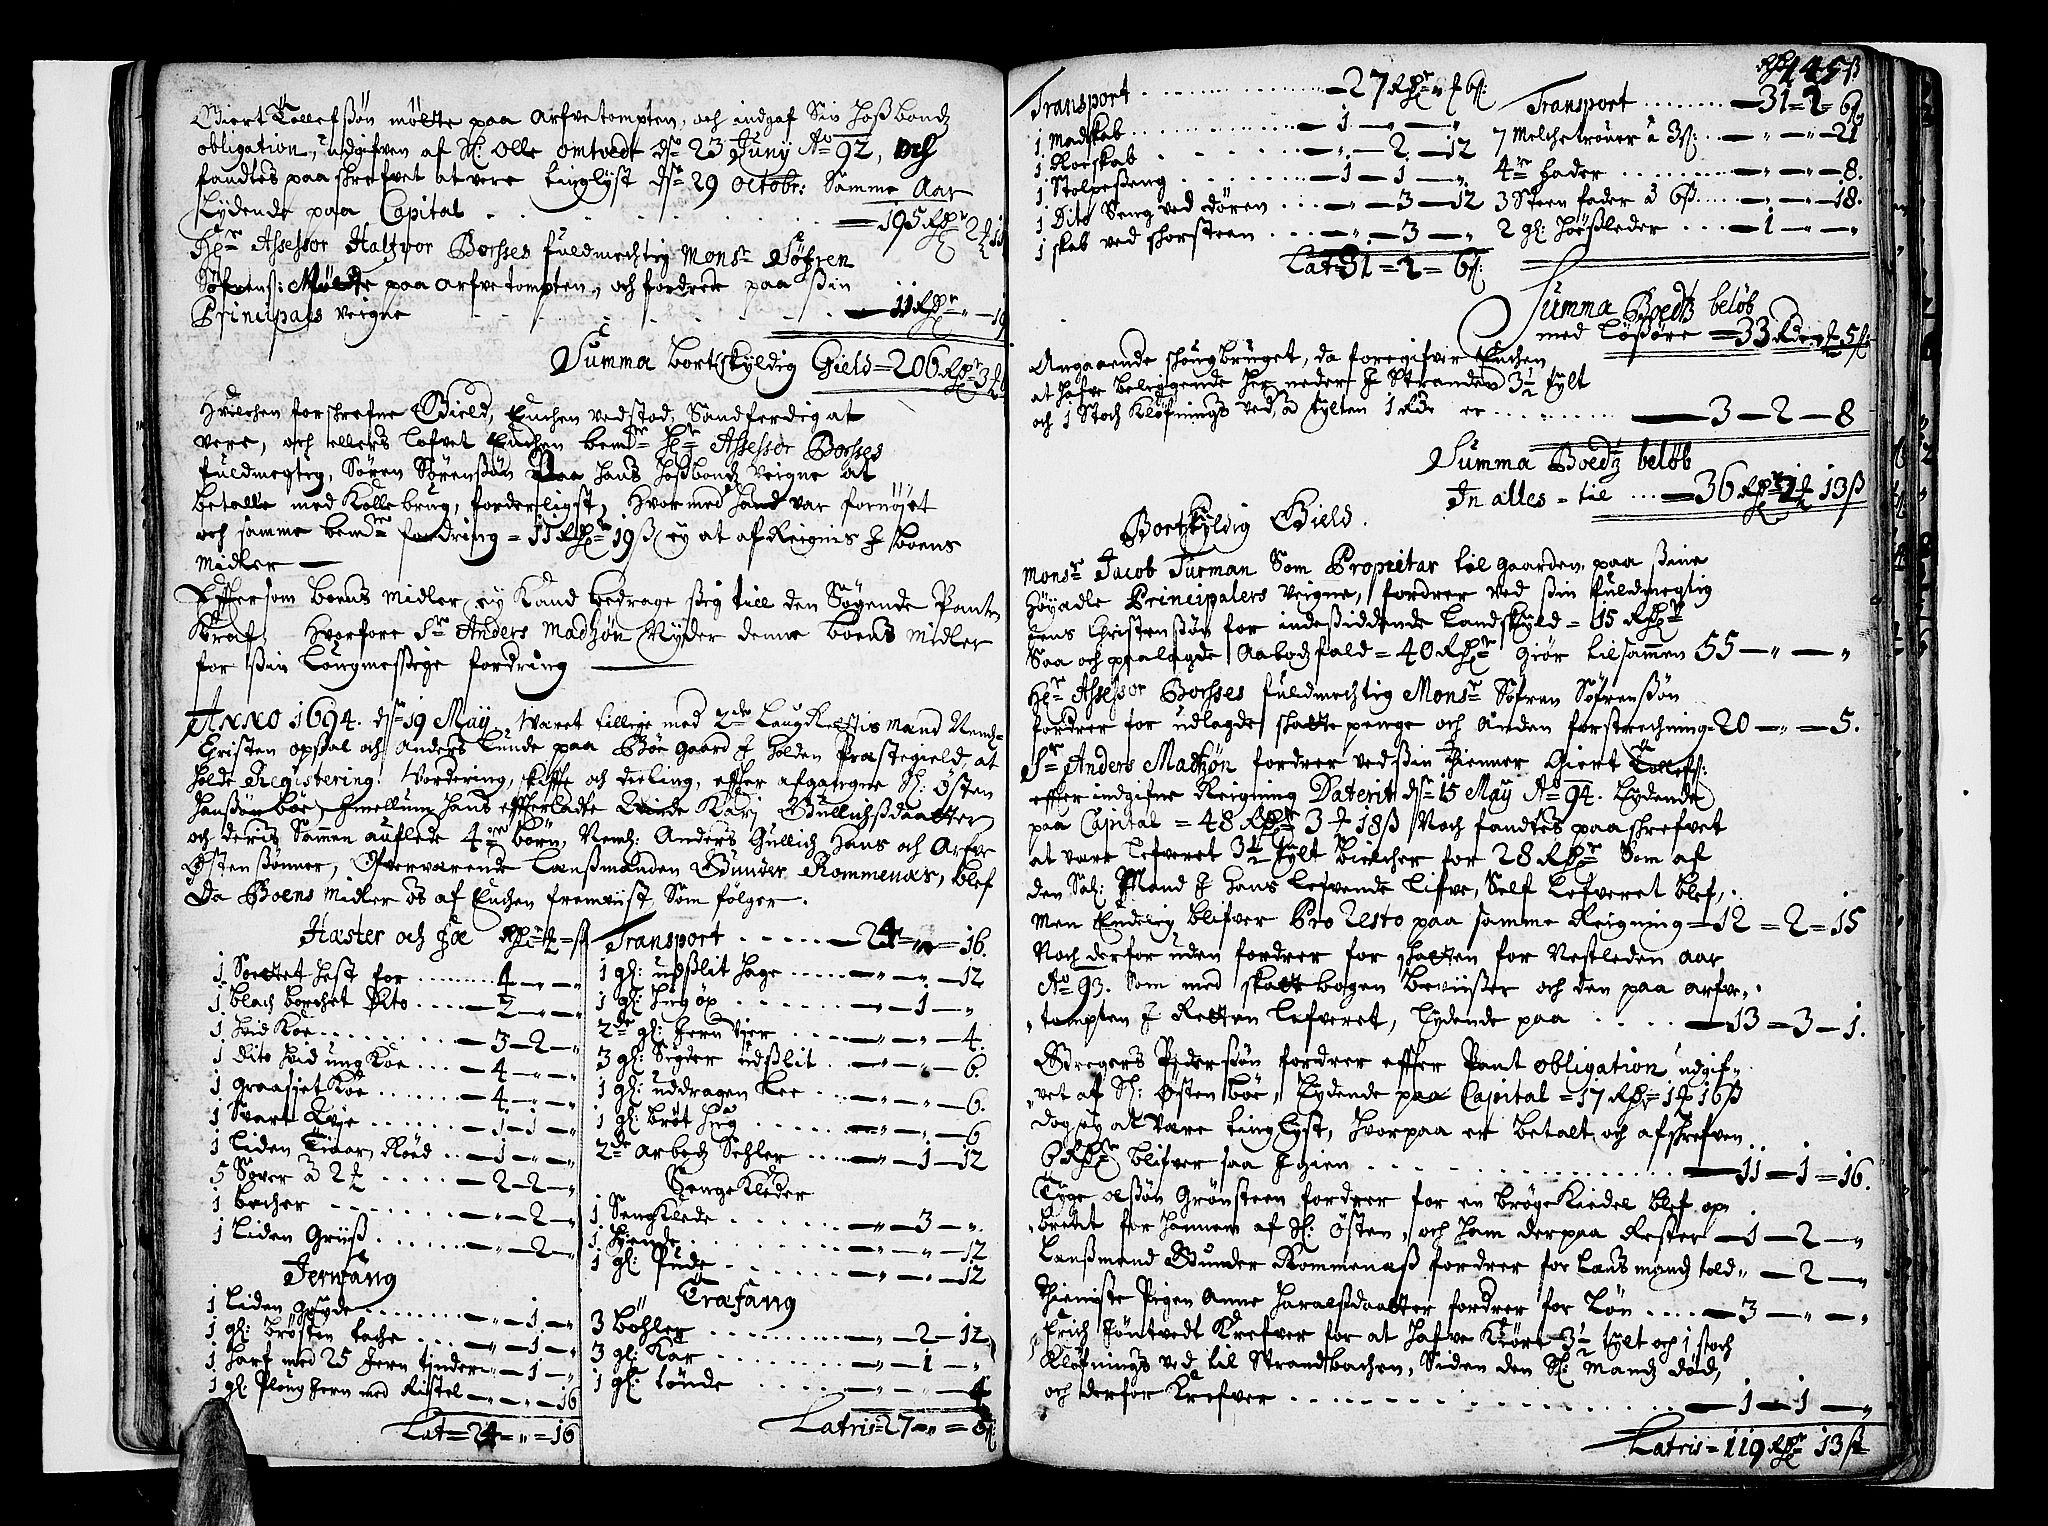 Giert Tollefßøn møtte paa arfvetompten, och indgaf Sin Hoßbonds
obligation, udgifven af Sl: Olle omtvedt dn 23 Juny Ao 92, och
fandtes paa skrefvet at vere tinglyst dn 29 octobr: Samme Aar
Lydende paa Capital - - - - 195 Rdr 2
Hr Assessor Haltvor Borsses fuldmechtig Monsr Søfren
Søfrens: Mødte paa arfvetompten, och fordrede paa ßin
Principals veigne - - - - 11 Rdr - 19
Summa bortskyldig Gield = 206 Rdr 3
Hvilchen forskrefne Gield, Enchen vedstod, Sandferdig at
vere, och ellers lofvet Enchen bemte Hr Assessor Borsses
fuldmegtig, Søren Sørenßøn Paa hans Hoßbonds veigne at
betalle med Kollebrug, forderligst, Hvormed hand var fornøjet
och samme bemte fordring = 11 Rdr 19 ß ey at afReignis J boens
midler —
Effersom boens midler ey Kand bedrage ßig till den Søgende Panten
Kraf, Hvorfore Sr Anders Madtzøn Nyder denne boens midler
for ßin Lougmessige fordring —
Anno 1694. dn 19 May Varet tillige med 2de LaugRettis mand Neml:
Christen opsal och Anders Lunde paa Bøe gaard J Holden Præstegield, at
holde Registering, Vordering, skiffte och deeling, effter afgangne Sl: Østen
Hanßøn bøe, Jmellum hans effterladte Enche Karj Gullichßdaatter
och deris Sammen auflede 4re børn, Neml: Anders Gullich Hans och Arfve
Østensønner, Ofververende Lanßmanden Gunder Rommenæs, blef
Da Boens midler os af Enchen fremvist, Som følger.
Hæster och Fæ Rdr = ß
1 Sortet hest for ........ 4 — " — "
1 blach borchet Dito .... 2 — " — "
1 hvid Koe ........ 3 — 2 — "
1 dito hvid ung Koe ... 4 — " — "
1 graasjet Koe ...... 4 — " — "
1 Svart Qvje ...... 1 — 1 — "
1 Liden Tiaar, Røed ... 1 — " — "
5 Søver à 2 ..... 2 — 2 — "
1 becher ........ " — 2 — "
1 Liden Griiß ...... " — 2 — "
Jernfang
1 Liden gryde ........ " — 1 — "
1 gl: brøsten tache .... " — 1 — "
1 harf med 25 Jern tinder " — 1 — "
1 gl: Ploug Jern med Ristel " — " — 16
Lat = 24 = " = 16
Transport ...... 24 = " = 16.
1 gl: udßlit hage .... " — " — 12
1 gl: hug øx ........ " — 1 — "
2de gl: Jern Vier .... " — " — 4.
3 gl: Sigder udßlit .. " — " — 6.
1 gl: uddragen Lee .... " — " — 6.
1 gl: brøt Jeg ...... " — " — 6
2de arbedz Sehler .... " — 1 — 12
Senge Klæder
1 Sengklede ...... " — 3 — "
1 hyende ........ " — " — 12
1 gl: Pude ........ " — " — 12
Træfang
3 bøhler ........ " — 2 — 12
3 gl: Kar ........ " — 1 — "
1 gl: tønde ...... " — " — 4
Latris = 27 — " = 6 ß:
445
Transport ........ 27 Rdr " 6 ß:
1 Madskab ........ 1 — " — "
1 Roeskab ........ " — 2 — 12
1 Stolpeßeng ........ 1 — 1 — "
1 Dito Seng ved døren .... " — 3 — 12
1 skab ved skorsteen .... " — 3 — "
Lat = 31 = 2 = 6 ß:
Transport ........ 31 = 2 = 6 ß
7 Melchetrouer à 3 ß: ... " — " — 21
4re Fader ........ " — " — 8.
3 Steen fader à 6 ß .... " — " — 18.
2 gl: Høeßleder ... " — 1 — "
Summa Boedtz beløb
med Løßøre = 33 Rdr " 5 ß
Angaaende skougbruget, da foregifver Enchen
at hafve beliggende her neder J Stranden 3½ tylt
och 1 Stoch Kløfnings ved, à tylten 1 Rdr er ........ 3 — 2 — 8
Summa Boedtz beløb
In alles - til ... 36 Rdr 2 13 ß
Bortskyldig Gield.
Monsr Jacob Turman Som Propietar til gaarden, paa ßine
Høyadle Principalers Veigne, fordrer ved ßin fuldmegtig
Jens Christenßøn for indeßiddende Landskyld = 15 Rdr
Saa och paalagde Aabodz fald = 40 Rdr giør tilsammen 55 — " — "
Hr Assessor Borsses fuldmechtig Monsr Søfren Søfrenßøn
fordrer for udlagde skatte penge och Anden forstrechning 20 — " — 5.
Sr Anders Madtzøn fordrer ved ßin Thienner Giert Tollefs:
effter indgifne Reigning Daterit dn 15 May Ao 94. Lydende
paa Capital = 48 Rdr 3 18 ß Noch fandtes paaskrefvet
at vare Lefveret 3½ tylt bielcher for 28 Rdr Som af
den Sal: Mand J hans Lefvende Lifve, Self Lefveret blef,
Men Endelig blifver Pro Resto paa samme Reigning 12 = 2 = 15
Noch derforuden fordrer for skatten for Nestleden aar
Ao 93. Som med skatte bogen Beviißer och den paa arfve-
tompten J Retten Lefveret, Lydende paa .... 13 = 3 — 1.
Gregers Pederßøn fordrer effter Pant obligation udgif-
vet af Sl: Østen bøe, Lydende paa Capital = 17 Rdr 1 16 ß
dog ey at vare tinglyst, Hvorpaa er betalt och afskrefven
6 Rdr blifver saa Jgien ........ 11 — 1 = 16.
Tyge olßøn Grønsteen fordrer for en brøgekiedel blef op-
brent for hannem af Sl: Østen, och ham derpaa Rester — 1 — 2 — "
Lanßmand Gunder Rommenæß fordrer for Lansmandz told " — 2 — "
Thieniste Pigen Anne Haralßdaatter fordrer for Løn .... 3 — " — "
Erich Jøntvedt Krefver for at hafve Kiørt 3½ tylt och 1 stoch
Kløfnings ved til Strandbachen, Siden den Sl: Mandz død,
och derfor Krefver ........ 1 — 1 — "
Latris = 119 Rdr 13 ß